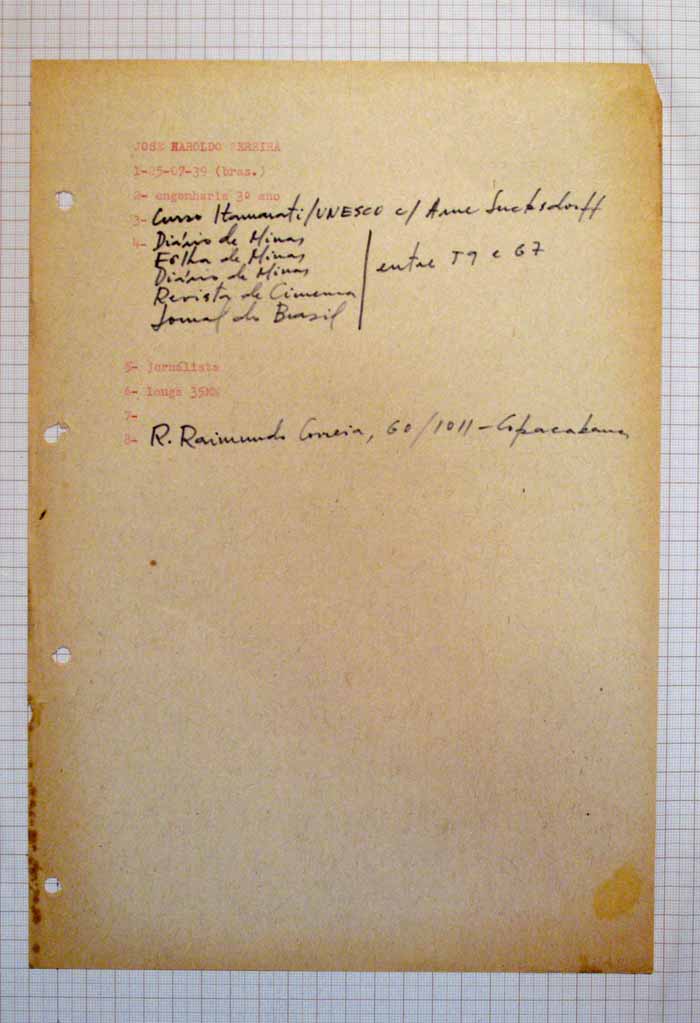 JOSE HAROLDO PEREIRA
1-25-07-39 (bras.)
2- engenharia 3º ano
3- Curso Itamarati/UNESCO c/ Arne Sucksdorff
4- Diário de Minas
Folha de Minas
Diário de Minas
Revista de Cinema
Jornal do Brasil
entre 59 e 67
5- jornalista
6- longa 35MM
7-
8- R. Raimundo Correia, 60/1011 - Copacabana